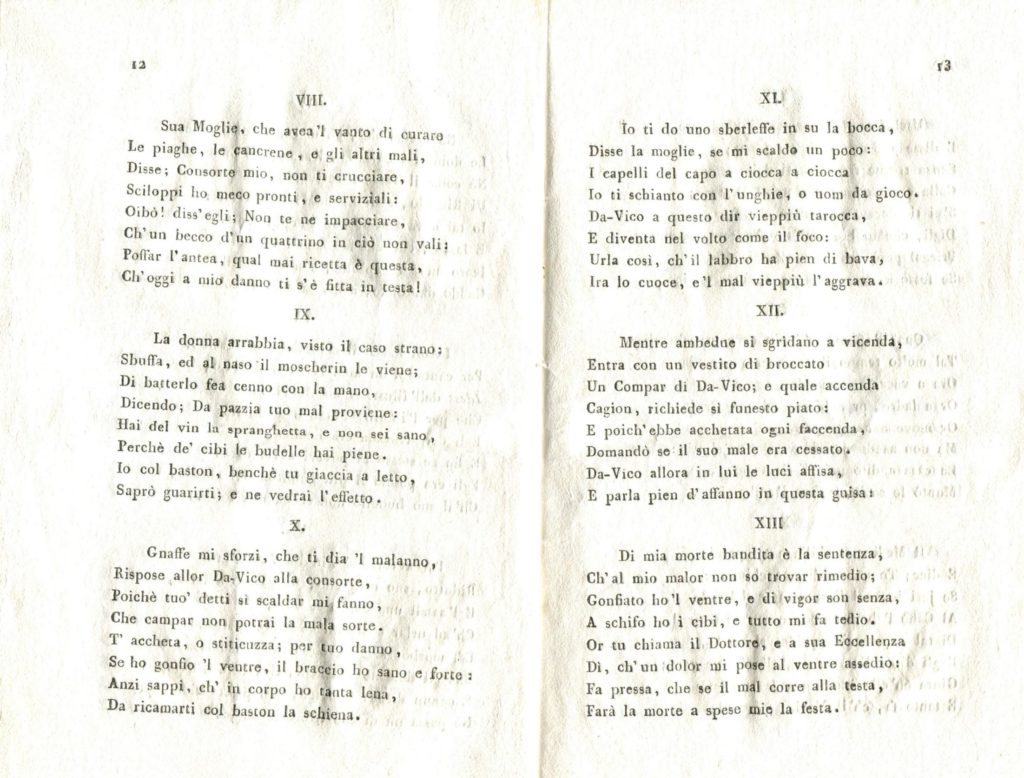 12
VIII.
Sua Moglie, che avea'l vanto di curare
Le piaghe, le cancrene, e gli altri mali,
Disse; Consorte mio, non ti crucciare,
Sciloppi ho meco pronti, e serviziali:
Oibò! diss'egli; Non te ne impacciare,
Ch'un becco d'un quattrino in ciò non vali:
Poffar l'antea, qual mai ricetta è questa,
Ch'oggi a mio danno ti s'è fitta in testa!
IX.
La donna arrabbia, visto il caso strano;
Sbuffa, ed al naso il moscherin le viene;
Di batterlo fea cenno con la mano,
Dicendo; Da pazzia tuo mal proviene:
Hai del vin la spranghetta, e non sei sano,
Perchè de' cibi le budelle hai piene.
Io col baston, benchè tu giaccia a letto,
Saprò guarirti; e ne vedrai l'effetto.
X.
Gnaffe mi sforzi, che ti dia 'l malanno,
Rispose allor Da-Vico alla consorte,
Poichè tuo' detti sì scaldar mi fanno,
Che campar non potrai la mala sorte.
T' accheta, o stiticuzza; per tuo danno,
Se ho gonfio 'l ventre, il braccio ho sano e forte:
Anzi sappi, ch' in corpo ho tanta lena,
Da ricamarti col baston la schiena.
13
XI.
Io ti do uno sberleffe in su la bocca,
Disse la moglie, se mi scaldo un poco:
I capelli del capo a ciocca a ciocca
Io ti schianto con l'unghie, o uom da gioco.
Da-Vico a questo dir vieppiù tarocca,
E diventa nel volto come il foco:
Urla così, ch'il labbro ha pien di bava,
Ira lo cuoce, e'l mal vieppiù l'aggrava.
XII.
Mentre ambedue si sgridano a vicenda,
Entra con un vestito di broccato
Un Compar di Da-Vico; e quale accenda
Cagion, richiede sì funesto piato:
E poich'ebbe acchetata ogni faccenda,
Domandò se il suo male era cessato.
Da-Vico allora in lui le luci affisa,
E parla pien d'affanno in questa guisa:
XIII
Di mia morte bandita è la sentenza,
Ch'al mio malor non so trovar rimedio;
Gonfiato ho'l ventre, e di vigor son senza,
A schifo ho i cibi, e tutto mi fa tedio.
Or tu chiama il Dottore, e a sua Eccellenza
Dì, ch'un dolor mi pose al ventre assedio:
Fa pressa, che se il mal corre alla testa,
Farà la morte a spese mie la festa.